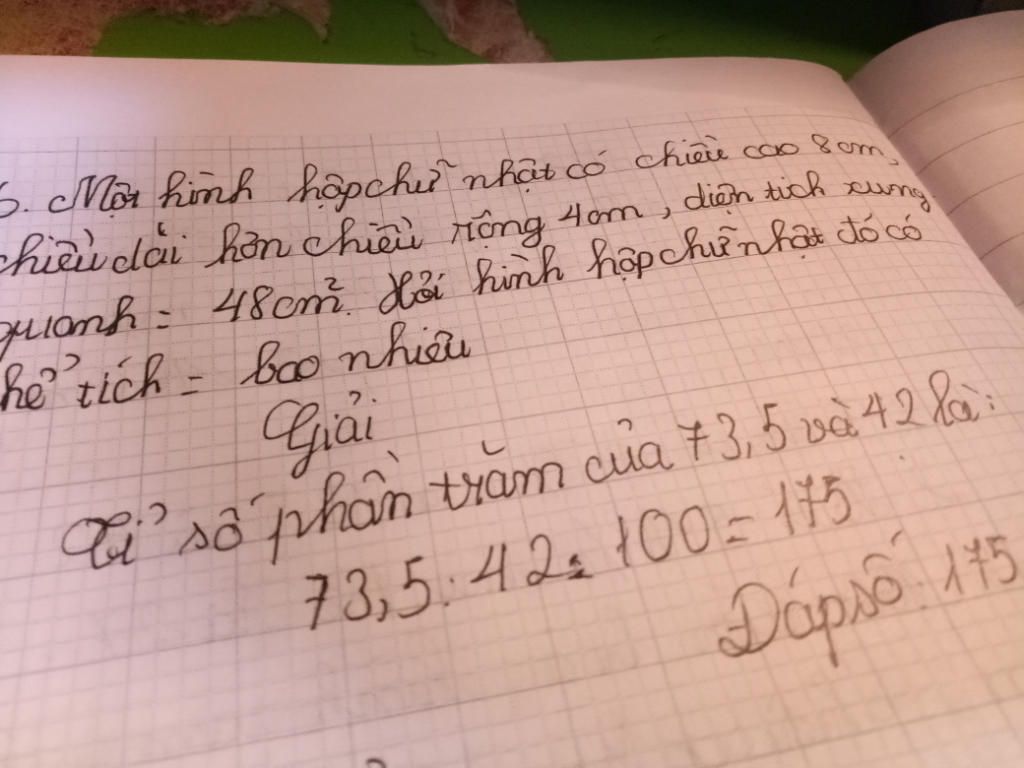 6. Một hình hộp chữ nhật có chiều cao 8 cm,
chiều dài hơn chiều rộng 4cm, diện tích xung
quanh = 48cm². Hỏi hình hộp chữ nhật đó có
thể tích = bao nhiêu
Giải
Tỉ số phần trăm của 73,5 và 42 là:
73,5 : 42 × 100 = 175
Đáp số: 175